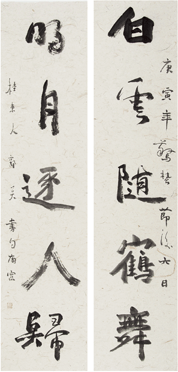 白雲随鶴舞
庚寅年驚蟄節後六日
明月逐人歸